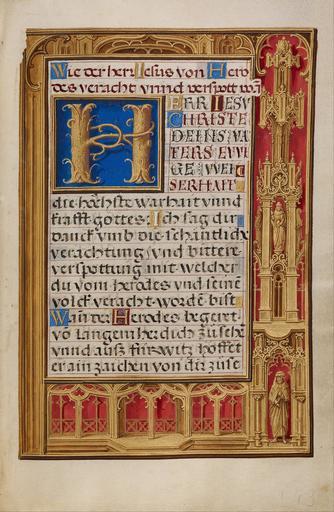 Wie der herr Iesus von Hero
des veracht vnnd verspott wa
HERR IESV
CHRISTE
DEINS VA
TERS EWI
GE WEIS
HERHAIT
die höchste warhait vnnd
krafft gottes. Ich sag dir
danck vmb die schantliche
verachtung vnd bittere
verspottung mit welcher
du vom herodes vnd seine
volck veracht worde bist
Wan der Herodes begert
vo langem her dich zu sehe
vnnd auß fürwitz hoffet
er ain zaichen von dir zu se